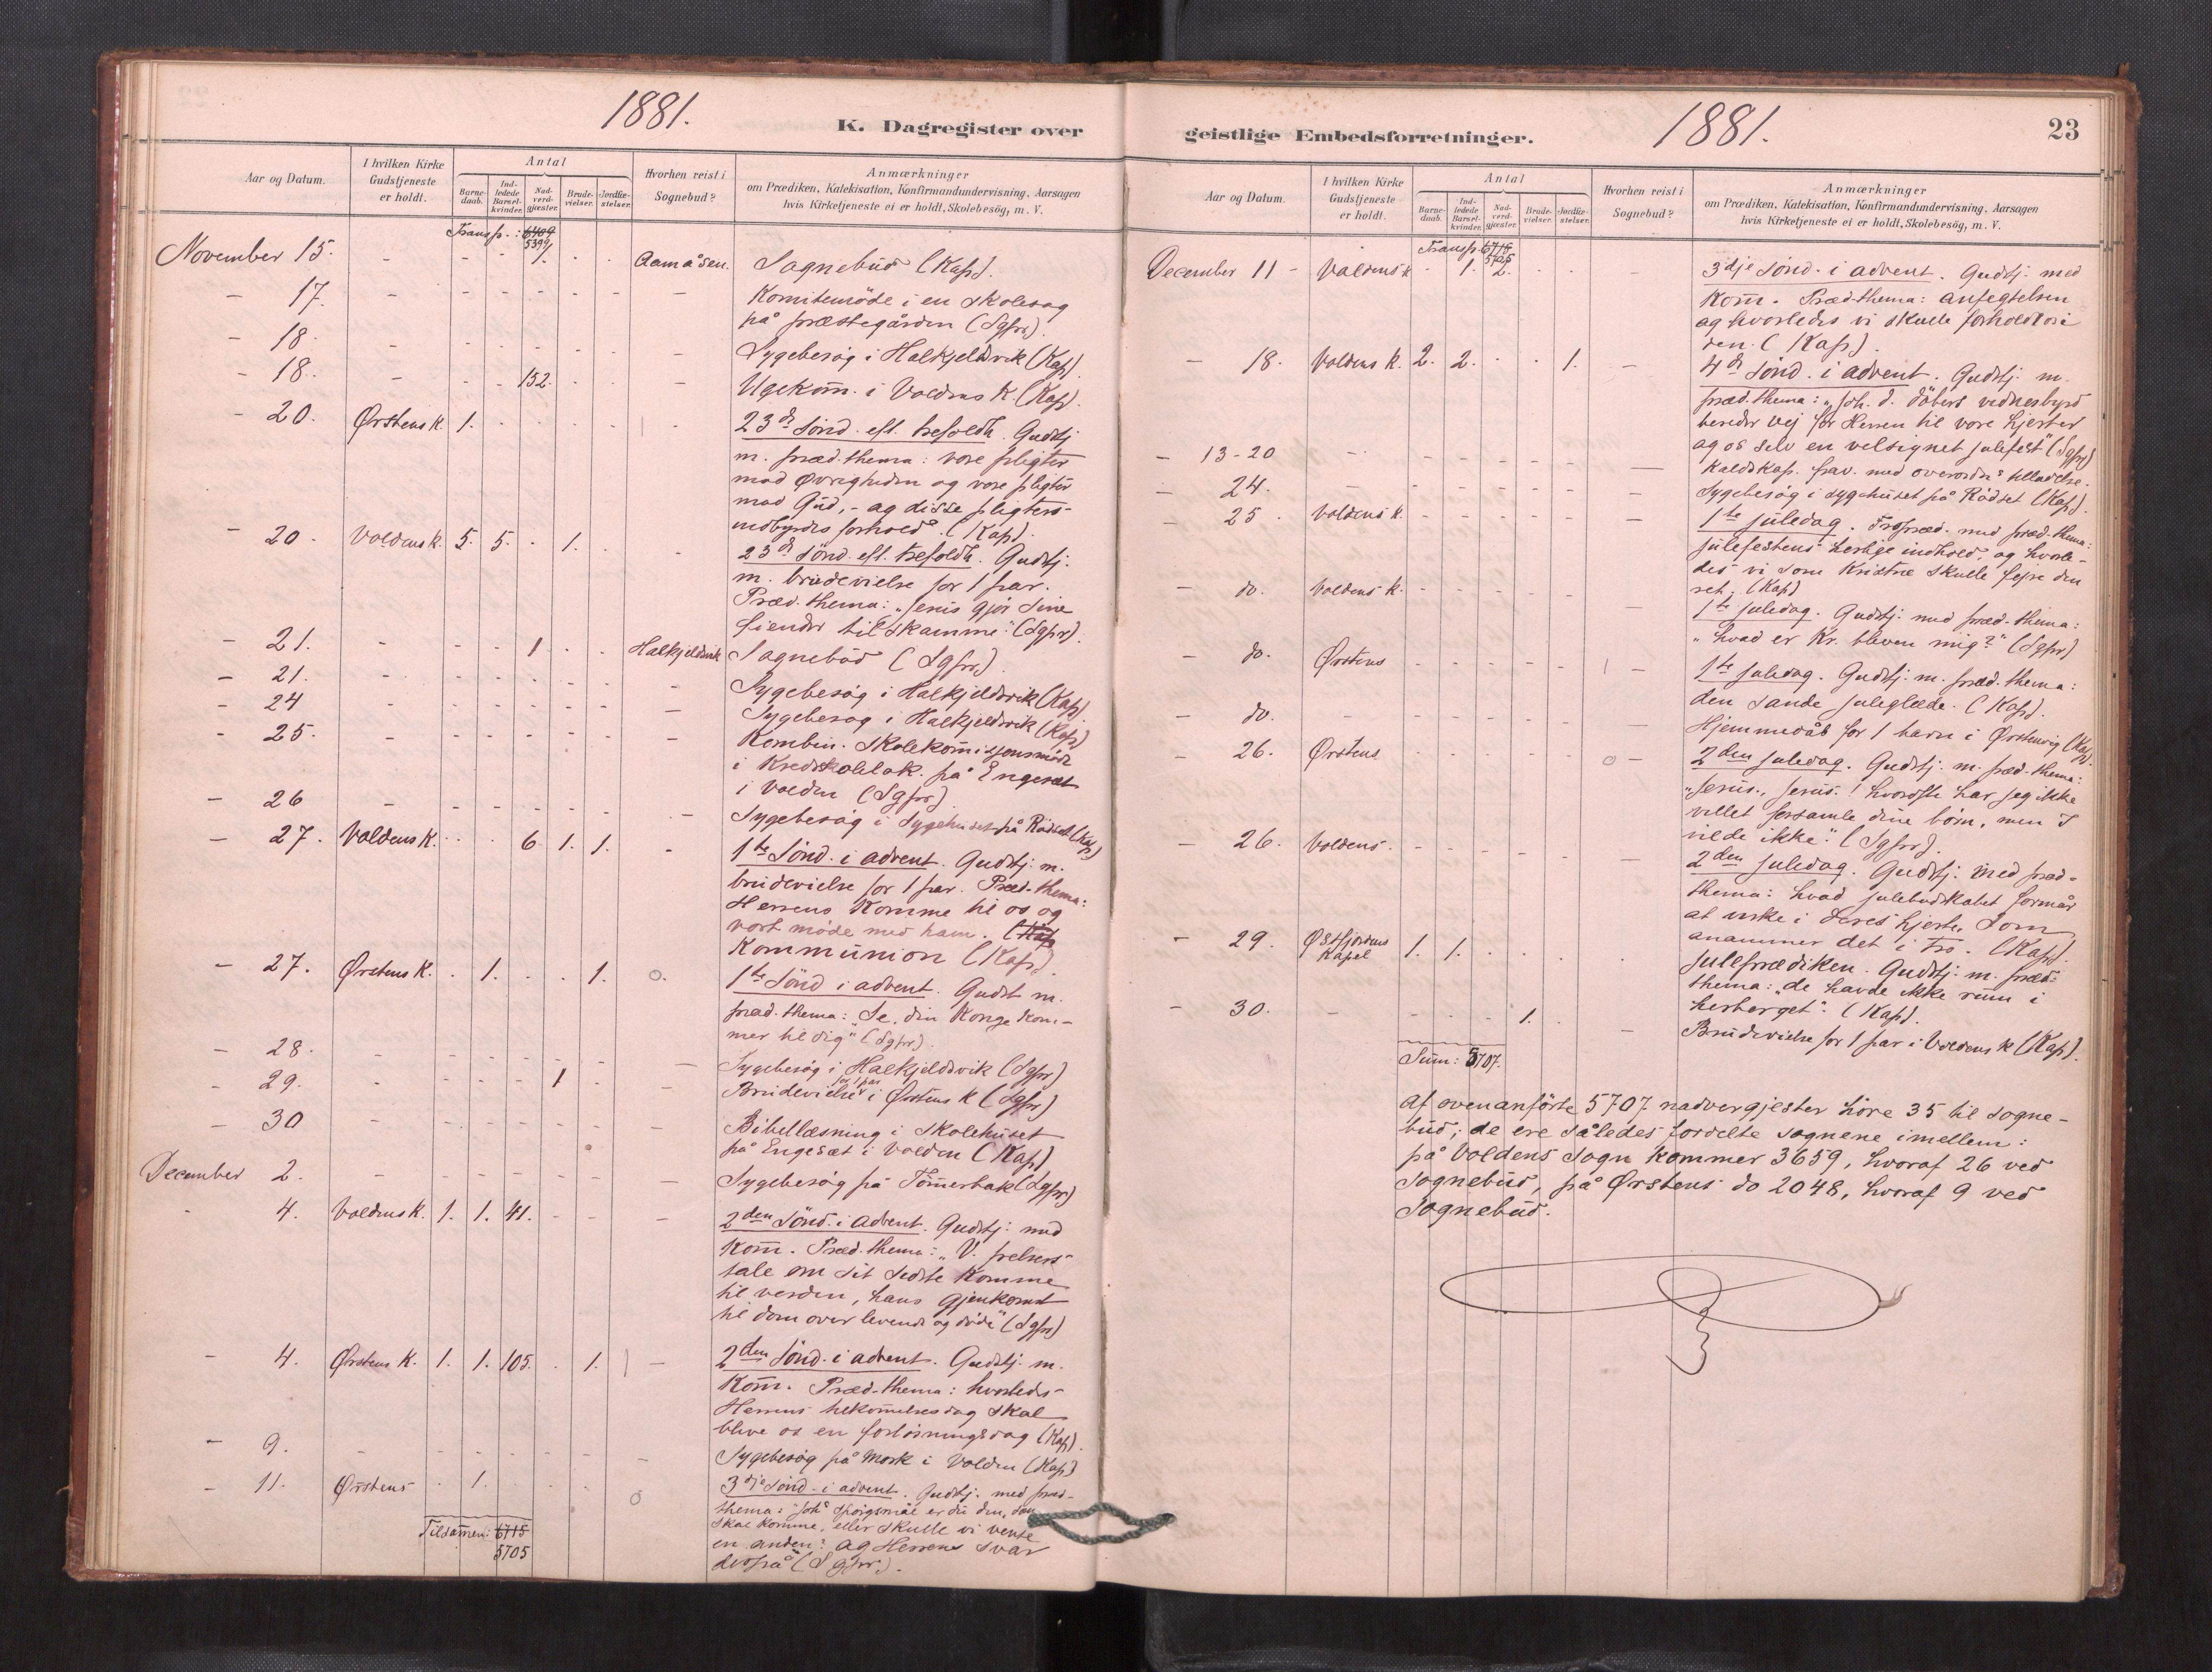 1881.
K. Dagregister over
Aar og Datum.
I hvilken Kirke Gudstjeneste er holdt.
Antal
Barne-daab.
Ind-ledede Barsel-kvinder.
Nad-verd-gjæster.
Brude-vielser.
Jordfæ-stelser.
Hvorhen reist i Sognebud?
Anmærkninger
om Prædiken, Katekisation, Konfirmandundervisning, Aarsagen
hvis Kirketjeneste ei er holdt, Skolebesög, m. V.
Transp.: 6409
5399
November 15. - - - 1. - - Aamåsen. Sognebud (Kap).
- 17. - - - - - - - Komitemöde i en skolesag
på præstegården (Sgpr).
- 18 - - - - - - - Sygebesög i Halkjeldsvik (Kap)
- 18. - - - 152. - - - Ugekom̄. i Voldens K. (Kap).
- 20. Ørstens K. 1. - - - - - 23d Sönd. eft. trefoldh. Gudstj
m. præd. thema: vore pligter
mod Øvrigheden og vore pligter
mod Gud, - og disse pligters
indbyrdes forhold. (Kap).
- 20. Voldens K. 5. 5. - 1. - - 23d Sönd. eft. trefoldh. Gudstj.
m. brudevielse for 1 par.
Præd. thema: „Jesus gjör sine
fiender tilskamme." (Sgpr).
- 21. - - - 1 - - Halkjeldsvik Sognebud (Sgpr).
- 21. - - - - - - - Sygebesög i Halkjeldsvik (Kap)
- 24 - - - - - - - Sygebesög i Halkjeldsvik (Kap)
- 25. - - - - - - Kombin. Skolekom̄isjonsmöde
i Kredsskolelok. på Engeset
i Volden (Sgpr).
- 26 - - - - - - - Sygebesög i Sygehuset på Rödset (Kap)
- 27. Voldens K. - - 6 1. 1. - 1te Sönd. i advent. Gudstj. m.
brudevielse for 1 par. Præd. thema:
Herrens Komme til os og
vort möde med ham. (Kap
Kommunion (Kap).
- 27. Ørstens K. - 1. - - 1. o. 1te Sönd i advent. Gudst m.
præd. thema: „Se, din Konge kom-
mer til dig" (Sgpr).
- 28. - - - - - - - Sygebesög i Halkjeldsvik (Sgpr)
- 29. - - - - 1 - - Brudevielse for 1 par i Ørstens K (Sgpr)
- 30 - - - - - - - Bibellæsning i Skolehuset
på Engeset i Volden (Kap)
December 2. - - - - - - - Sygebesög på (Sgpr)
- 4. Voldens K. 1. 1. 41. - - - 2den Sönd. i advent. Gudstj. med
Kom̄. Præd. thema: „V. frelsers
tale om sit sidste Komme
til verden, hans gjenkomst
til dom over levende og döde" (Sgpr)
- 4. Ørstens K. 1. 1. 105. - 1. - 2den Sönd. i advent. Gudstj. m.
Kom̄. Præd. thema: hvorledes
Herrens tilkom̄elsesdag skal
blive os en forlösningsdag (Kap).
- 9. - - - - - - - Sygebesög på Mork i Volden (Kap)
- 11. Ørstens - 1. - - - o 3dje Sönd. i advent. Gudstj. med præd-
thema: Joh's spörgsmål er du den, som
skal komme, eller skulle vi vente
en anden? og Herrens svar
derpå" (Sgpr).
Tilsam̄en: 6715
5705
1881.
23
geistlige Embedsforretninger.
Aar og Datum.
I hvilken Kirke Gudstjeneste er holdt.
Antal
Barne-daab.
Ind-ledede Barsel-kvinder.
Nad-verd-gjæster.
Brude-vielser.
Jordfæ-stelser.
Hvorhen reist i Sognebud?
Anmærkninger
om Prædiken, Katekisation, Konfirmandundervisning, Aarsagen
hvis Kirketjeneste ei er holdt, Skolebesög, m. V.
Transp. 6715
5705
December 11 - Voldens K - 1. 2. - - - 3dje Sönd. i advent. Gudstj. med
Kom̄. Præd-thema: anfegtelsen
og hvorledes vi skulle forholde os i
den. (Kap).
- 18. Voldens K. 2. 2. - - 1. - 4de Sönd. i advent. Gudstj. m.
præd. thema: „Joh. d. döbers vidnesbyrd
bereder vej for Herren til vore hjerter
og os selv en velsignet julefest" (Sgpr)
- 13-20 - - - - - - - Kaldskap. frav. med overordn. tilladelse.
- 24. - - - - - - - Sygebesög i sygehuset på Rödset (Kap).
- 25. Voldens K. - - - - - - 1te juledag. Fropræd. med præd. thema:
julefestens herlige indhold, og hvorle-
des vi som Kristne skulle fejre den
ret. (Kap)
- do. Voldens K. - - - - - - 1te juledag. Gudstj. med præd. thema:
„hvad er Kr. bleven mig?" (Sgpr)
- do. Ørstens - - - - - - 1te juledag. Gudstj. m. præd. thema:
den sande juleglæde. (Kap).
- do. - - - - - - - Hjemmedåb for 1 barn i Ørstenvig (Kap).
- 26. Ørstens - - - - - o - 2den juledag. Gudstj. m. præd. thema:
„Jerus., Jerus.! hvorofte har jeg ikke
villet forsamle dine börn, men I
vilde ikke." (Sgpr).
- 26. Voldens. - - - - - - 2den juledag. Gudstj. med præd-
thema: hvad julebudskabet formår
at virke i deres hjerte, som
anammer det i tro. (Kap).
- 29. Østfjordens Kapel 1. 1. - - - - Juleprædiken. Gudstj. m. præd-
thema: „de havde ikke rum i
herberget". (Kap).
- 30. - - - - 1. - - Brudevielse for 1 par i Voldens K (Kap).
Sum: 5707.
Af ovenanförte 5707 nadvergjester höre 35 til sogne-
bud; de ere således fordelte sognene imellem:
på Voldens sogn kommer 3659, hvoraf 26 ved
sognebud, på Ørstens do 2048, hvoraf 9 ved
sognebud.